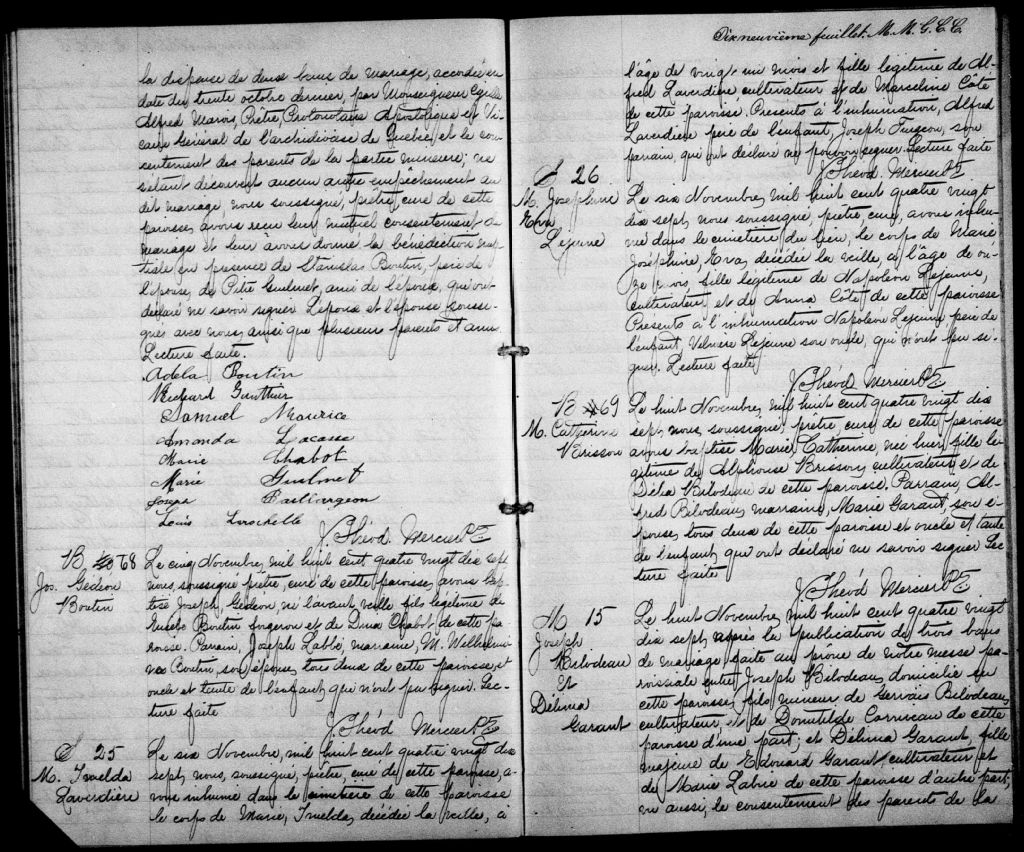 la dispense de deux bans de mariage, accordée en
date du trente octobre dernier, par Monseigneur Cyrille
Alfred Marois, Prêtre, Protonotaire Apostolique et Vi-
caire Général de l'archidiocèse de Québec, et le con-
sentement des parents de la partie mineure; ne
s'étant découvert aucun autre empêchement au
dit mariage, nous soussigné, prêtre, curé de cette
paroisse, avons reçu leur mutuel consentement de
mariage et leur avons donné la bénédiction nup-
tiale en présence de Stanislas Boutin, père de
l'épouse, de Pitre Guelmet, ami de l'époux, qui ont
déclaré ne savoir signer. L'époux et l'épouse soussi-
gnés avec nous, ainsi que plusieurs parents et amis
Lecture faite.
Adela Boutin
Richard Gauthier
Samuel Maurice
Amanda Lacasse
Marie Chabot
Marie Guelmet
Joseph Baillargeon
Louis Larochelle
J. Théod Mercier Ptre
B 68
Jos. Gédéon
Boutin
Le cinq Novembre, mil huit cent quatre vingt dix sept
nous, soussigné prêtre, curé de cette paroisse, avons bap-
tisé Joseph, Gédéon, né l'avant veille fils légitime de
Boutin forgeron et de Dina Chabot de cette pa-
roisse. Parrain, Joseph Labbé, marraine, M. Wilhelmi-
ne Boutin, son épouse, tous deux de cette paroisse, et
oncle et tante de l'enfant, qui n'ont pu signer. Lec-
ture faite
J. Théod Mercier Ptre
S 25
M. Imelda
Laverdière
Le six Novembre, mil huit cent quatre vingt dix
sept, nous, soussigné, prêtre, curé de cette paroisse, a-
vons inhumé dans le cimetière de cette paroisse
le corps de Marie, Imelda, décédée la veille, à
Dixneuvième feuillet. M. M. G. C. C.
l'âge de vingt un mois et fille légitime de Al-
fred Laverdière cultivateur et de Marceline Côté
de cette paroisse. Présents à l'inhumation, Alfred
Laverdière père de l'enfant, Joseph Turgeon, son
parrain, qui ont déclaré ne pouvoir signer. Lecture faite
J. Théod. Mercier Ptre
S 26
M. Josephine
Eva
Lejeune
Le six Novembre, mil huit cent quatre vingt
dix sept, nous soussigné, prêtre, curé, avons inhu-
mé dans le cimetière du lieu, le corps de Marie
Joséphine, Eva, décédée la veille, à l'âge de on-
ze mois, fille légitime de Napoléon Lejeune,
cultivateur, et de Anna Côté de cette paroisse
Présents à l'inhumation Napoléon Lejeune père de
l'enfant, Lejeune son oncle, qui n'ont pu si-
gner. Lecture faite
J. Théod Mercier Ptre
B 69
M. Catherine
Brisson
Le huit Novembre, mil huit cent quatre vingt dix
sept, nous, soussigné, prêtre curé de cette paroisse
avons baptisé Marie, Catherine, née hier, fille lé-
gitime de Alphonse Brisson, cultivateur et de
Délia Bilodeau de cette paroisse. Parrain, Al-
fred Bilodeau, marraine, Marie Garant, son é-
pouse, tous deux de cette paroisse et oncle et tante
de l'enfant qui ont déclaré ne savoir signer. Lec-
ture faite
J. Théod Mercier Ptre
M 15
Joseph
Bilodeau
et
Délima
Garant
Le huit Novembre, mil huit cent quatre vingt
dix sept, après la publication de trois bans
de mariage faite au prône de notre messe pa-
roissiale entre Joseph Bilodeau, domicilié en
cette paroisse, fils mineur de Gervais Bilodeau,
cultivateur, et de Domitilde Corriveau de cette
paroisse d'une part; et Délima Garant, fille
majeure de Edouard Garant cultivateur et
de Marie Labrie de cette paroisse d'autre part;
vu aussi, le consentement des parents de la